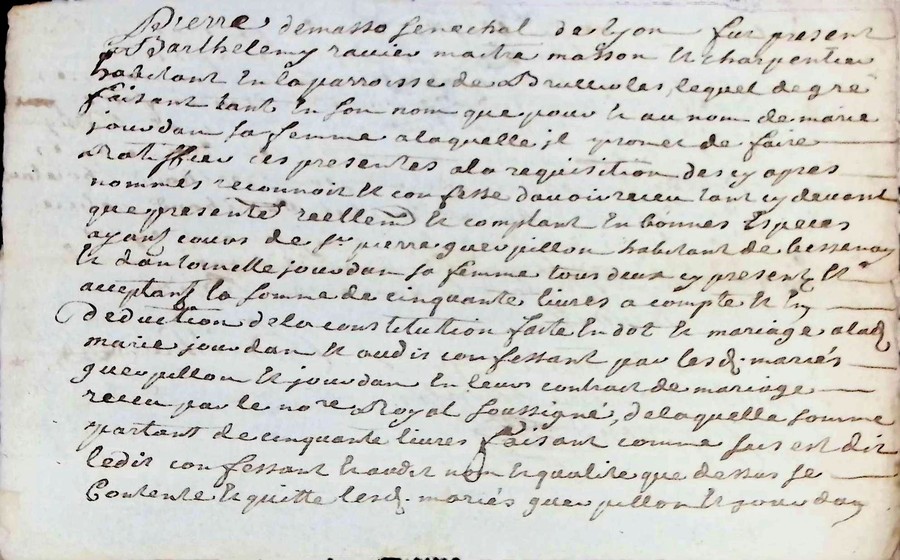 Pierre demasso senechal de lyon fut present
Barthelemy ravier maitre masson et charpentier
habitant en la parroisse de Brullioles, lequel de gré
faisant tant en son nom que pour et au nom de marie
jourdan sa femme a laquelle jl promet de faire
Ratiffier ces presentes a la requisition des cy apres
nommés reconnoit et confesse d'avoir receu tant cy devant
que presentet reellemt et comptant en bonnes Especes
ayant cours de sr pierre guerpillon habitant de bessenay
et d'antoinette jourdan sa femme tous deux cy present et
acceptant la somme de cinquante livres a compte et En
Deduction de la constitution faite En dot et mariage a lad
marie jourdan et audit confessant par lesd. mariés
guerpillon et jourdan en leurs contract de mariage
receu par le nore Royal soussigné, de laquelle somme
partant de cinquante livres faisant comme sus est dit
ledit confessant et audit nom et qualite que dessus se
Contente et quitte lesd. mariés guerpillon et jourdan